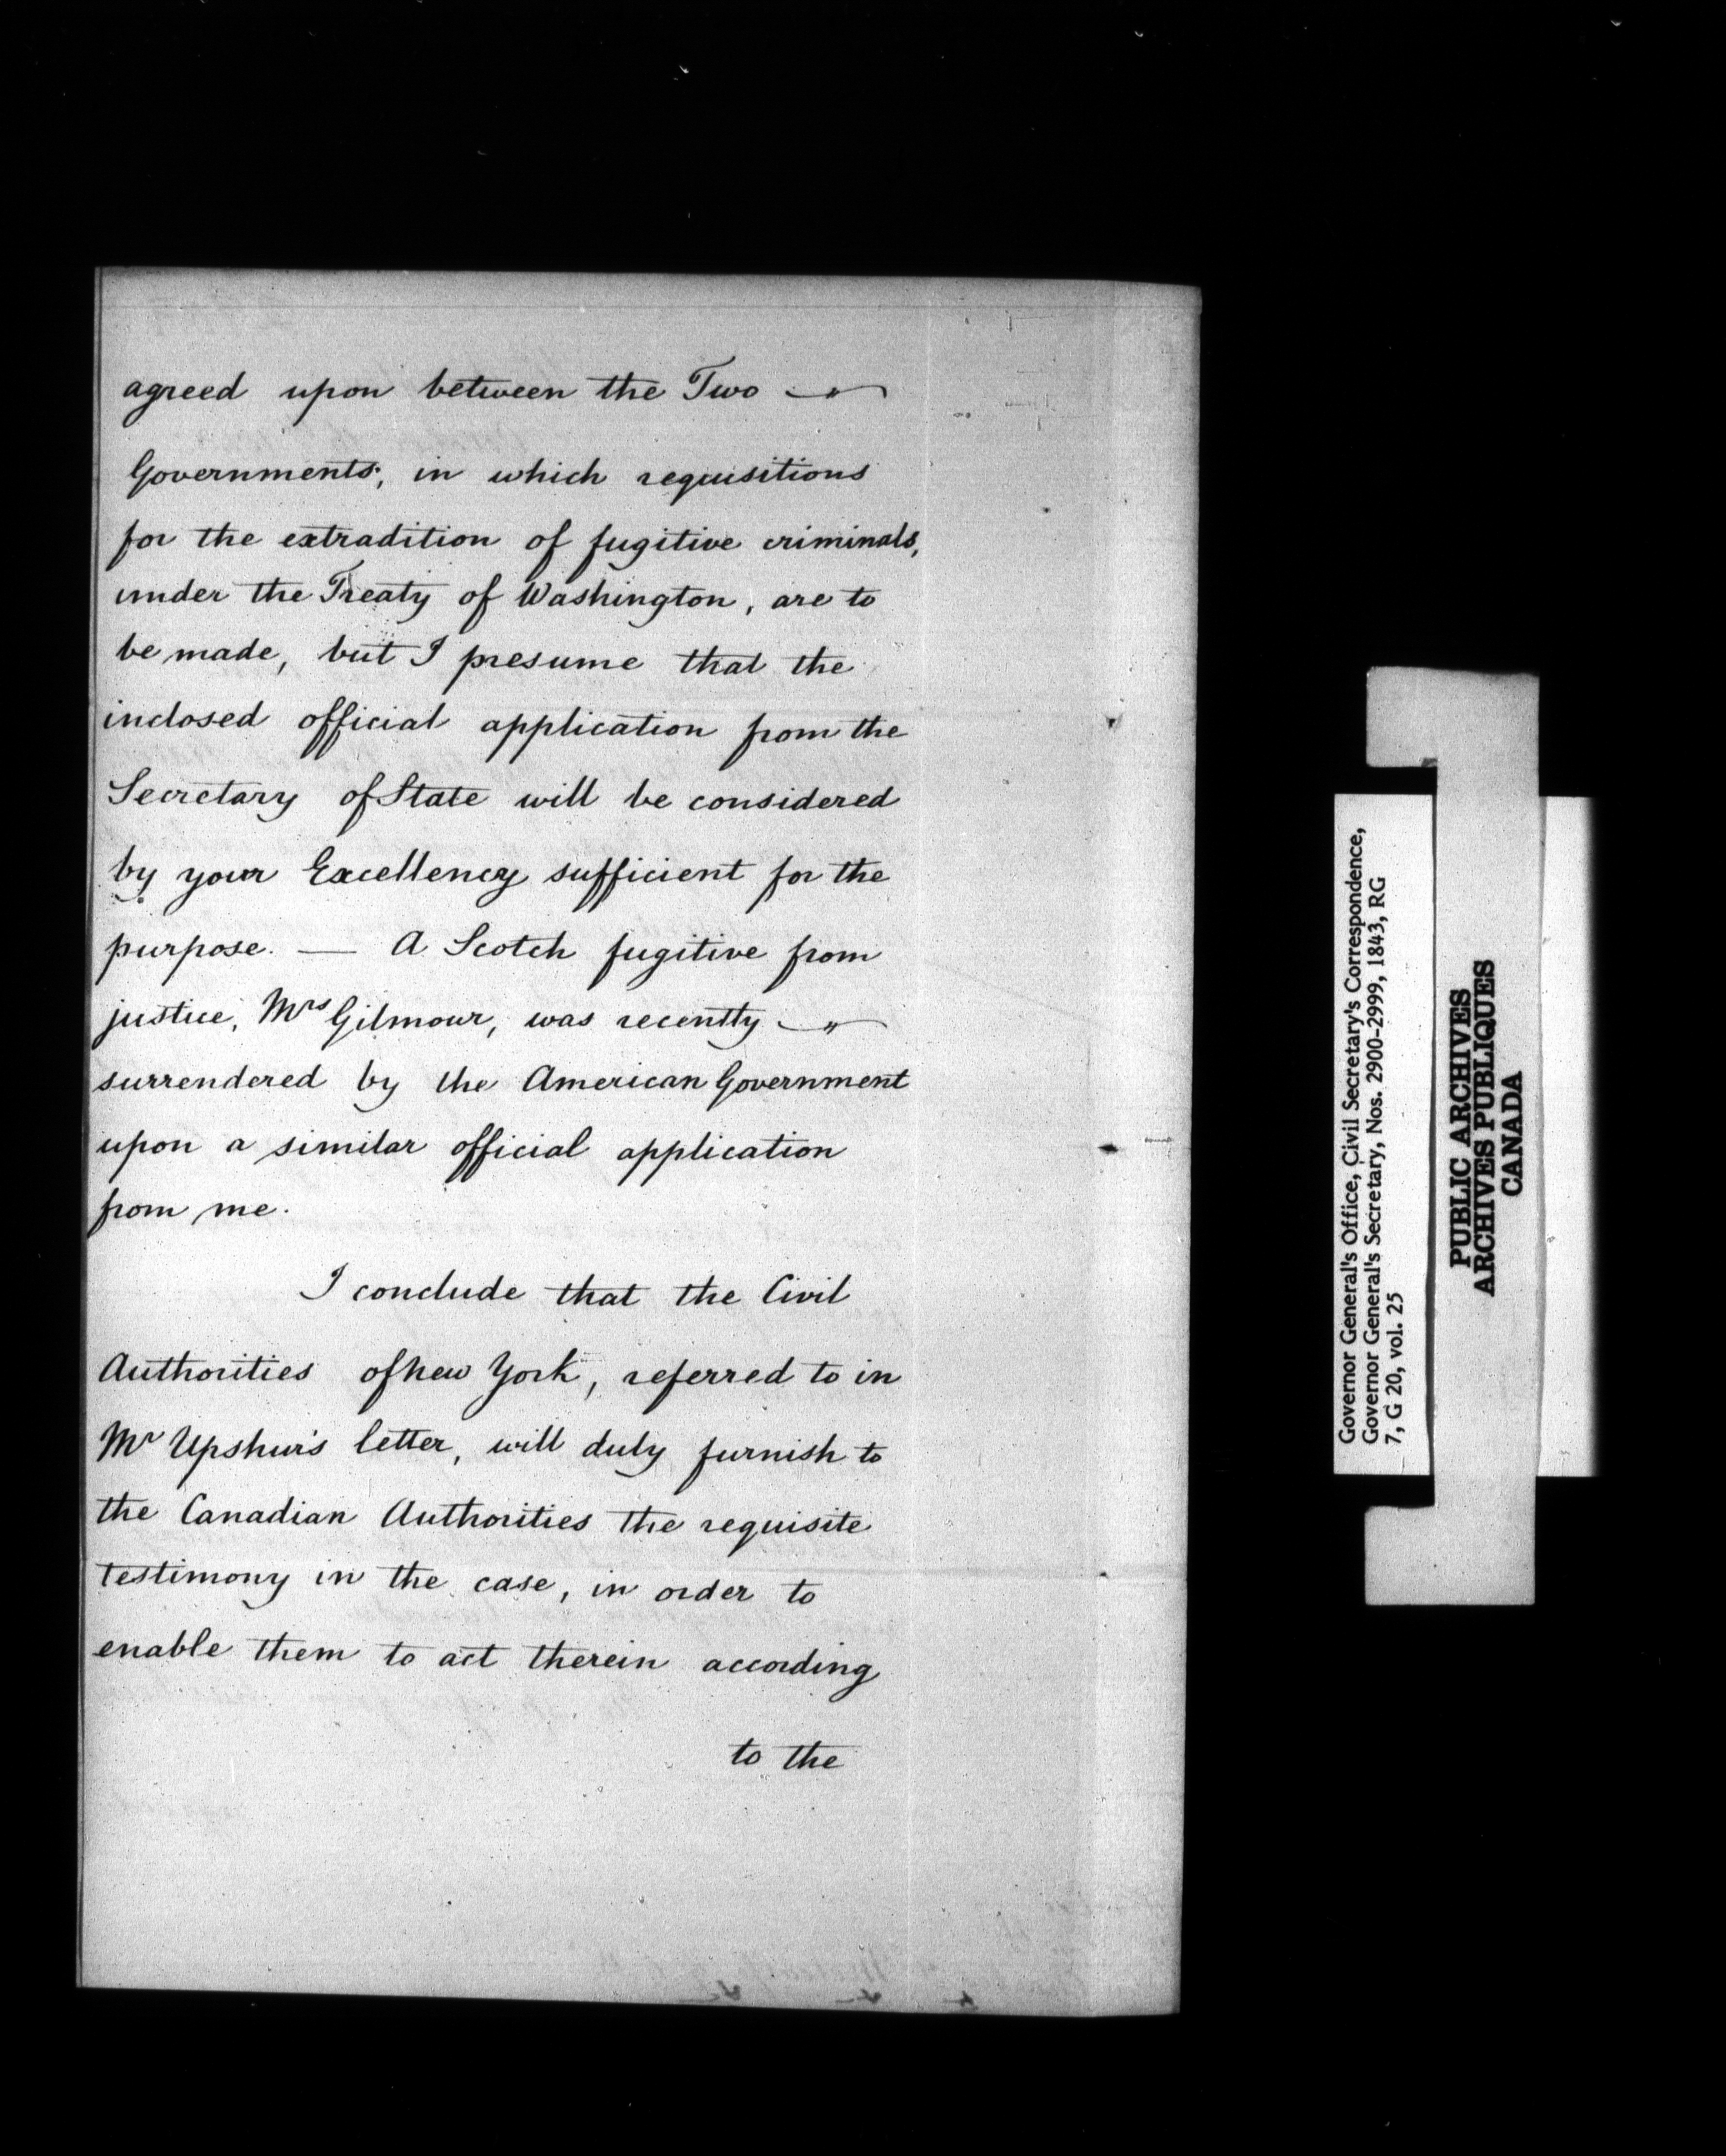 agreed upon between the Two
Governments, in which requisitions
for the extradition of fugitive criminals,
under the Treaty of Washington, are to
be made, but I presume that the
inclosed official application from the
Secretary of State will be considered
by your Excellency sufficient for the
purpose. — A Scotch fugitive from
justice, Mrs Gilmour, was recently
surrendered by the American Government
upon a similar official application
from me.
I conclude that the Civil
Authorities of New York, referred to in
Mr Upshur's letter, will duly furnish to
the Canadian Authorities the requisite
testimony in the case, in order to
enable them to act therein according
to the
Governor General's Office, Civil Secretary's Correspondence,
Governor General's Secretary, Nos. 2900-2999, 1843, RG
7, G 20, vol. 25
PUBLIC ARCHIVES
ARCHIVES PUBLIQUES
CANADA